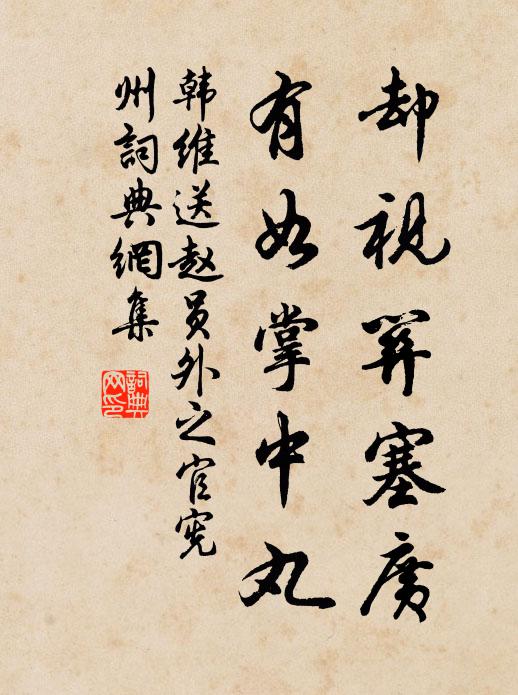 却視關塞廣
有如掌中丸
韩維送赵员外之官兖
州詞典網集
詞典网印